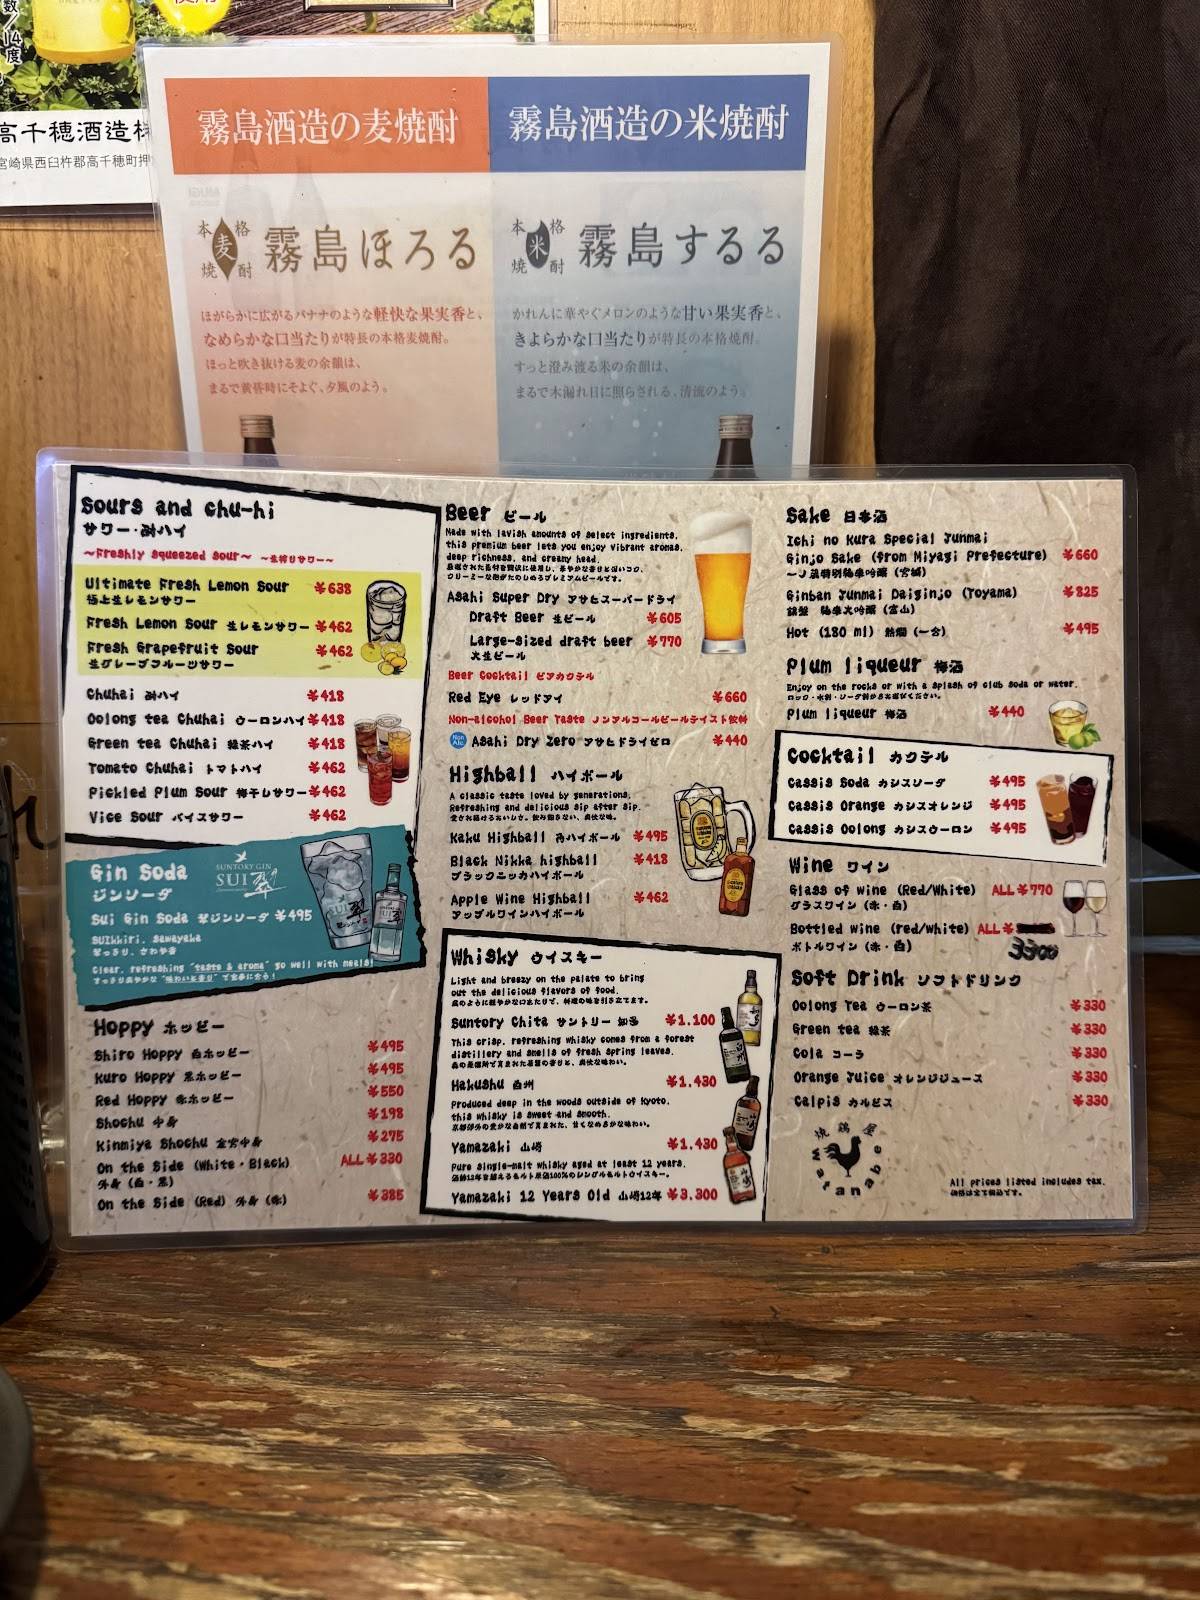 数/14度
高千穂酒造
宮崎県西臼杵郡高千穂町押
霧島酒造の麦焼酎
本格
麦
焼酎
霧島ほろる
ほがらかに広がるバナナのような軽快な果実香と、
なめらかな口当たりが特長の本格麦焼酎。
ほっと吹き抜ける麦の余韻は、
まるで黄昏時にそよぐ、夕風のよう。
霧島酒造の米焼酎
本格
米
焼酎
霧島するる
かれんに華やぐメロンのような甘い果実香と、
きよらかな口当たりが特長の本格焼酎。
すっと澄み渡る米の余韻は、
まるで木漏れ日に照らされる、清流のよう。
Sours and chu-hi
サワー・酎ハイ
~Freshly squeezed sour~ ~生搾りサワー~
Ultimate Fresh Lemon Sour ¥638
極上生レモンサワー
Fresh Lemon Sour 生レモンサワー ¥462
Fresh Grapefruit Sour ¥462
生グレープフルーツサワー
Chuhai 酎ハイ ¥418
Oolong tea Chuhai ウーロンハイ ¥418
Green tea Chuhai 緑茶ハイ ¥418
Tomato Chuhai トマトハイ ¥462
Pickled Plum Sour 梅干しサワー ¥462
Vice Sour バイスサワー ¥462
Gin Soda
ジンソーダ
SUNTORY GIN
SUI 翠
Sui Gin Soda 翠ジンソーダ ¥495
SUIkkiri, Sawayaka
Clear, refreshing "taste & aroma" go well with meals!
Hoppy ホッピー
Shiro Hoppy 白ホッピー ¥495
Kuro Hoppy 黒ホッピー ¥495
Red Hoppy 赤ホッピー ¥550
Shochu 中身 ¥198
Kinmiya Shochu 金宮中身 ¥275
On the Side (White・Black) ALL ¥330
外身 (白・黒)
On the Side (Red) 外身 (赤) ¥385
Beer ビール
Made with lavish amounts of select ingredients,
this premium beer lets you enjoy vibrant aromas,
deep richness, and creamy head.
Asahi Super Dry アサヒスーパードライ
Draft Beer 生ビール ¥605
Large-sized draft beer ¥770
大生ビール
Beer Cocktail ビアカクテル
Red Eye レッドアイ ¥660
Non-alcohol Beer Taste ノンアルコールビールテイスト飲料
Non Alc. Asahi Dry Zero アサヒドライゼロ ¥440
Highball ハイボール
A classic taste loved by generations.
Refreshing and delicious sip after sip.
Kaku Highball 角ハイボール ¥495
Black Nikka highball ¥418
ブラックニッカハイボール
Apple Wine Highball ¥462
アップルワインハイボール
Whisky ウイスキー
Light and breezy on the palate to bring
out the delicious flavors of food.
風のように軽やかな口あたりで、料理の味を引き立てます。
Suntory Chita サントリー 知多 ¥1,100
This crisp, refreshing whisky comes from a forest
distillery and smells of fresh spring leaves.
Hakushu 白州 ¥1,430
Produced deep in the woods outside of Kyoto,
this whisky is sweet and smooth.
Yamazaki 山崎 ¥1,430
Pure single-malt whisky aged at least 12 years.
Yamazaki 12 Years Old 山崎12年 ¥3,300
Sake 日本酒
Ichi no Kura Special Junmai
Ginjo Sake (from Miyagi Prefecture) ¥660
Ginban Junmai Daiginjo (Toyama) ¥825
銀盤 純米大吟醸 (富山)
Hot (180 ml) 熱燗 (一合) ¥495
Plum liqueur 梅酒
Enjoy on the rocks or with a splash of club soda or water.
ロック・水割・ソーダ割からお選びください。
Plum liqueur 梅酒 ¥440
Cocktail カクテル
Cassis Soda カシスソーダ ¥495
Cassis Orange カシスオレンジ ¥495
Cassis Oolong カシスウーロン ¥495
Wine ワイン
Glass of wine (Red/White) ALL ¥770
グラスワイン (赤・白)
Bottled wine (red/white) ALL ¥
ボトルワイン (赤・白) 3300
Soft Drink ソフトドリンク
Oolong Tea ウーロン茶 ¥330
Green tea 緑茶 ¥330
Cola コーラ ¥330
Orange Juice オレンジジュース ¥330
Calpis カルピス ¥330
焼鶏屋
Watanabe
All prices listed includes tax.
価格は全て税込です。